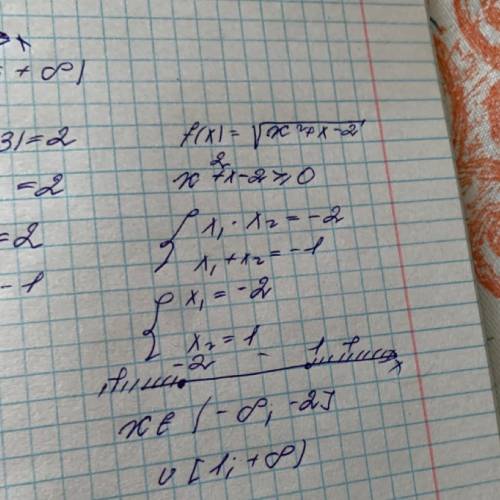 x
; +∞)
3) = 2
= 2
= 2
- 1
f(x) = √x²+x-2
x²+x-2 ≥ 0
{ x₁ · x₂ = -2
x₁ + x₂ = -1
{ x₁ = -2
x₂ = 1
+ -2 - 1 + x
x ∈ (-∞; -2]
∪ [1; +∞)